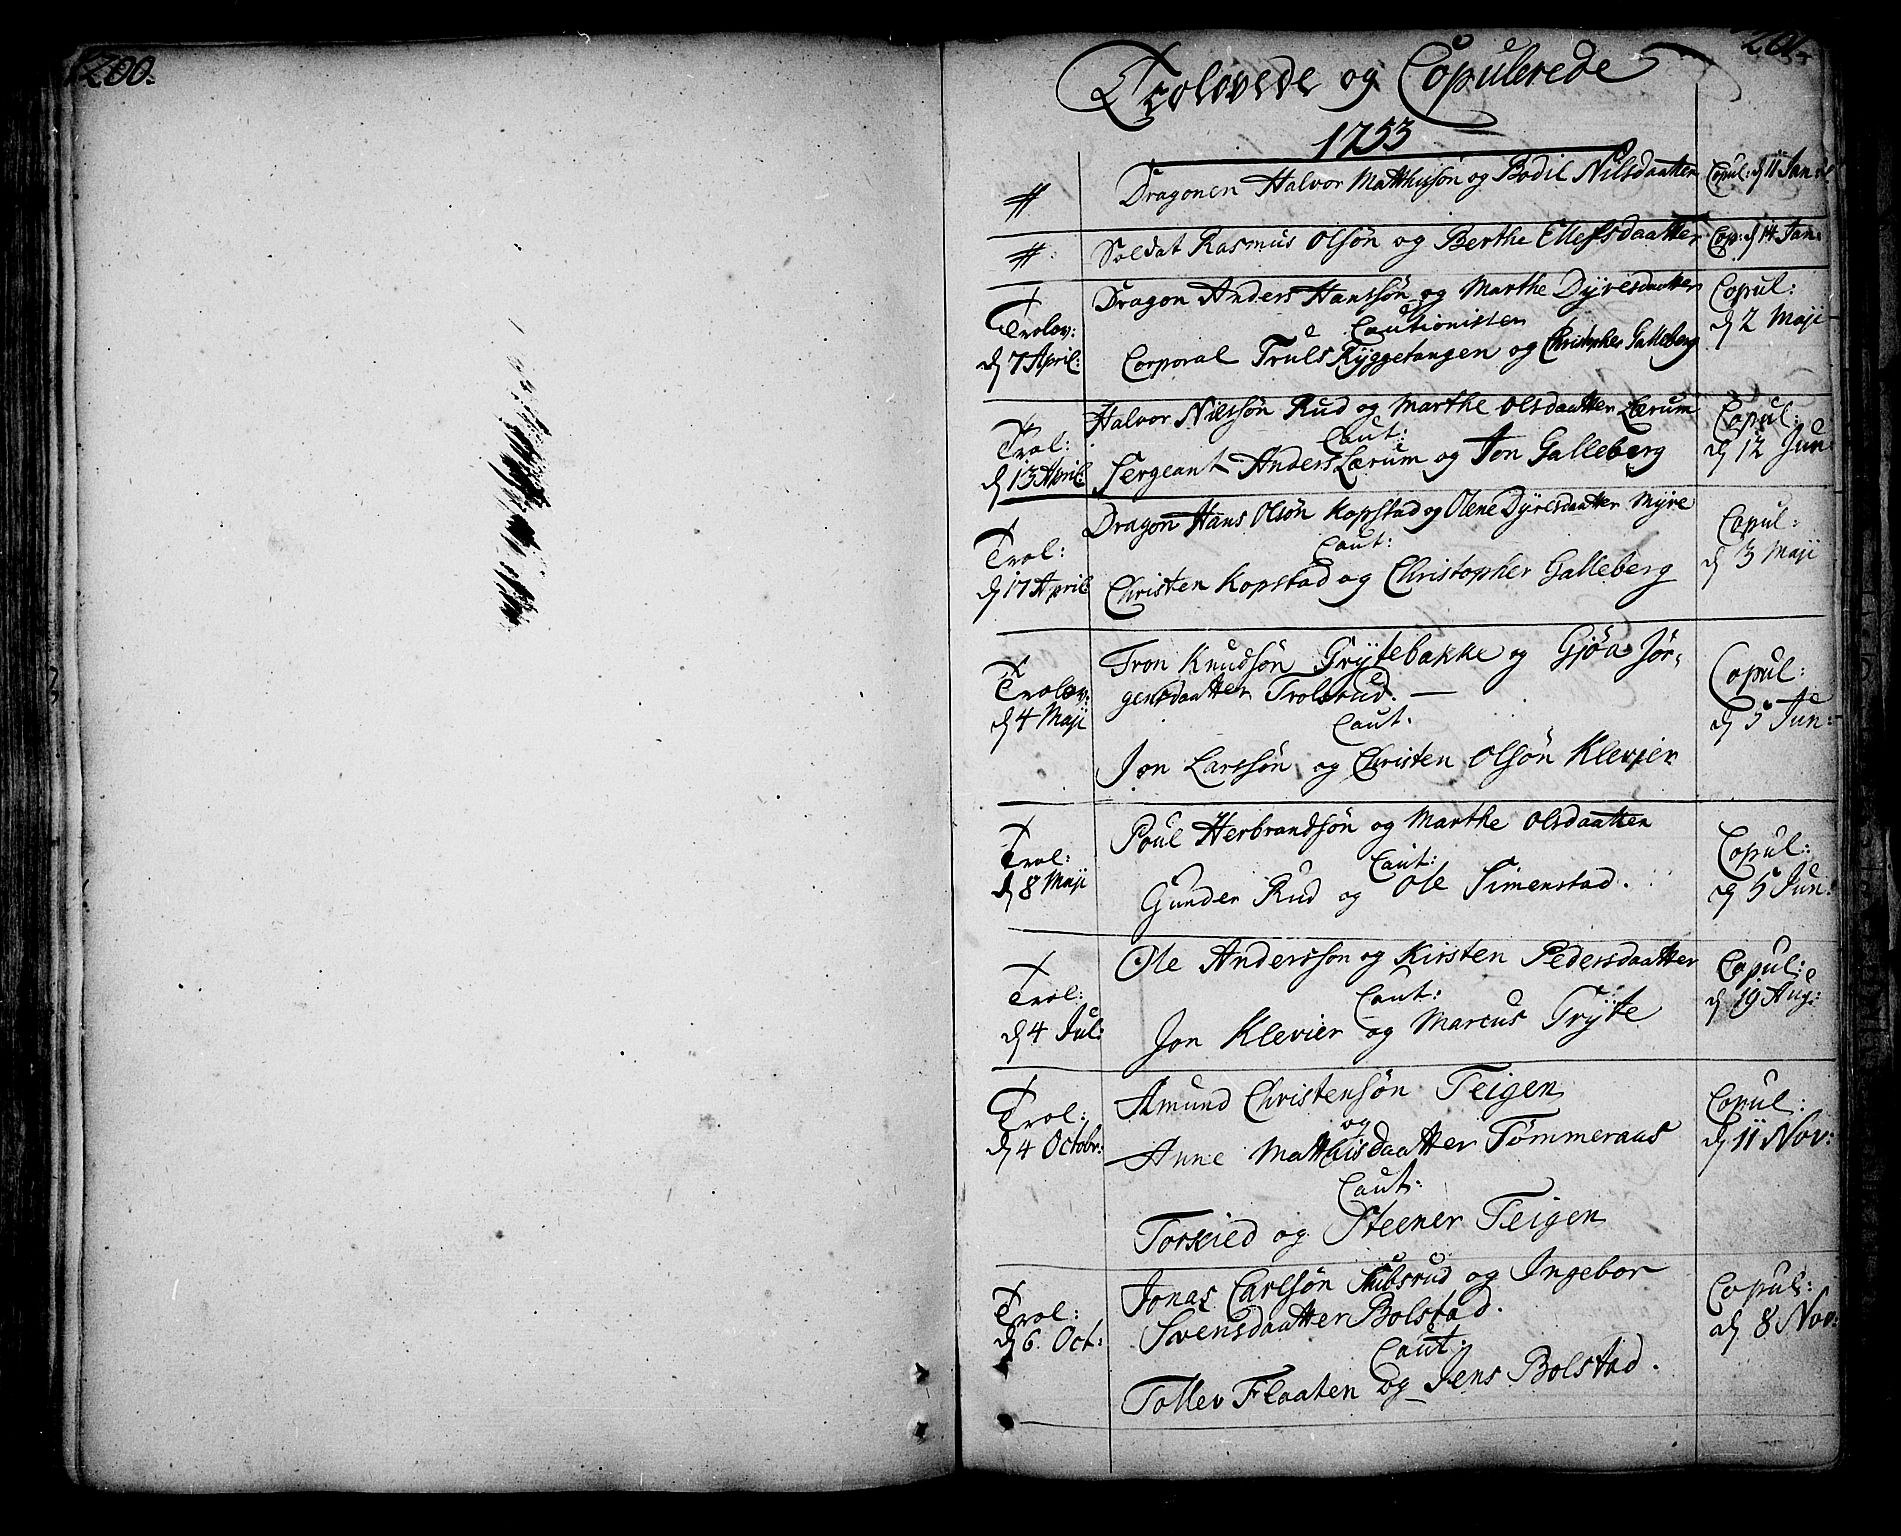 200.
201.
Trolovede og Copulerede
1753
# Dragonen Halvor Matthisøn og Bodil Nilsdaatter Copul: d 11 Jan:
# Soldat Rasmus Olsøn og Berthe Ellefsdaatter Cop: d 14 Jan:
Dragon Anders Hansøn og Marthe Dyresdaatter Copul:
Trolov: Cautionister d 2 Maji
d 7 April: Corporal Truls Ryggetangen og Christopher Galleberg
Halvor Nilssøn Rud og Marthe Olsdaatter Lærum Copul:
Trol: Caut: d 12 Jun:
d 13 April Sergeant Anders Lærum og Jon Galleberg
Dragon Hans Olsøn Kopstad og Olene Dyresdaatter Myre Copul:
Trol: Caut: d 3 Maji
d 17 April Christen Kopstad og Christopher Galleberg
Tron Knudsøn Grytebakke og Gjøa Jør-
Trolov: gensdaatter Trolsrud. Copul:
d 4 Maji Caut. d 5 Jun:
Jon Larssøn og Christen Olsøn Klevjer
Poul Herbrandsøn og Marthe Olsdaatter Copul:
Trol: Caut:
d 8 Maji Gunder Rud og Ole Simenstad. d 5 Jun:
Ole Anderssøn og Kirsten Pedersdaatter Copul:
Trol: Caut: d 19 Aug:
d 4 Jul: Jon Klevier og Marcus Gryte
Amund Christensøn Teigen Copul:
Trol: og
d 4 Octobr: Anne Matthisdaatter Tømmeraas d 11 Nov:
Caut:
Torkied og Steener Teigen
Jonas Carlsøn Stubsrud og Ingebor Copul:
Trol: Svensdaatter Bolstad. d 8 Nov:
d 6. Oct: Caut:
Tollev Flaaten og Jens Bolstad.